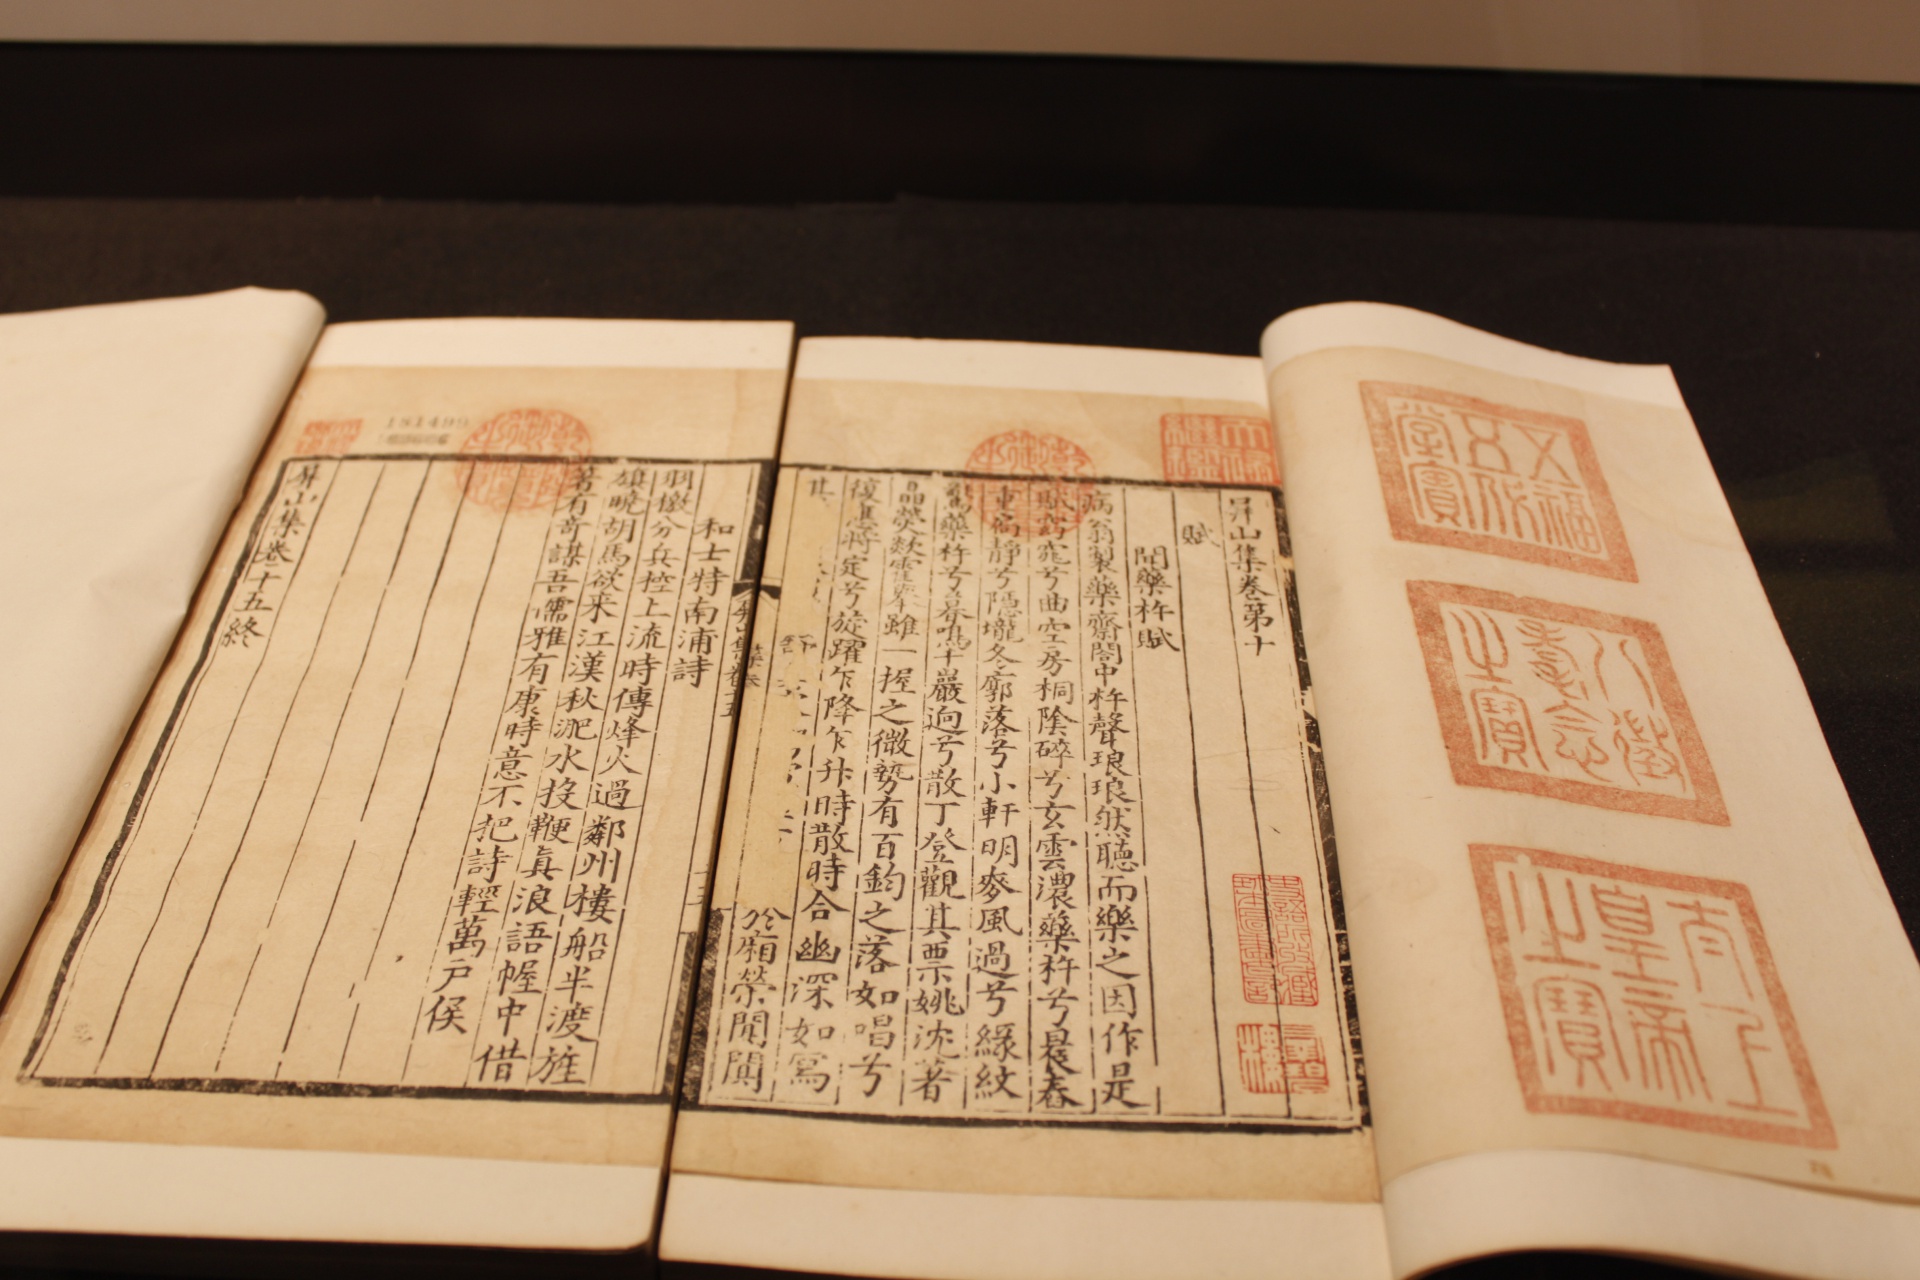 五福五代堂寶
八徵耄念之寶
太上皇帝之寶
屏山集卷第十
賦
聞藥杵賦
病翁製藥齋閤中杵聲琅琅然聽而樂之因作是
賦窈窕兮曲空房桐陰碎兮玄雲濃藥杵兮晨舂
重扃靜兮隱壠冬廓落兮小軒明麥風過兮綠紋
藥杵兮暮鳴千巖逈兮散丁登觀其票姚沈著
晶熒欻霍舉雖一握之微勢有百鈞之落如唱兮
復應將定兮旋躍乍降乍升時散時合幽深如寫
其
於廂榮閒闃
天祿繼鑑
和士特南浦詩
羽檄分兵控上流時傳烽火過鄰州樓船半渡旌
旗曉胡馬欲来江漢秋淝水投鞭真浪語幄中借
著有奇謀吾儒雅有康時意不把詩輕萬戶侯
屏山集卷十五終
181499